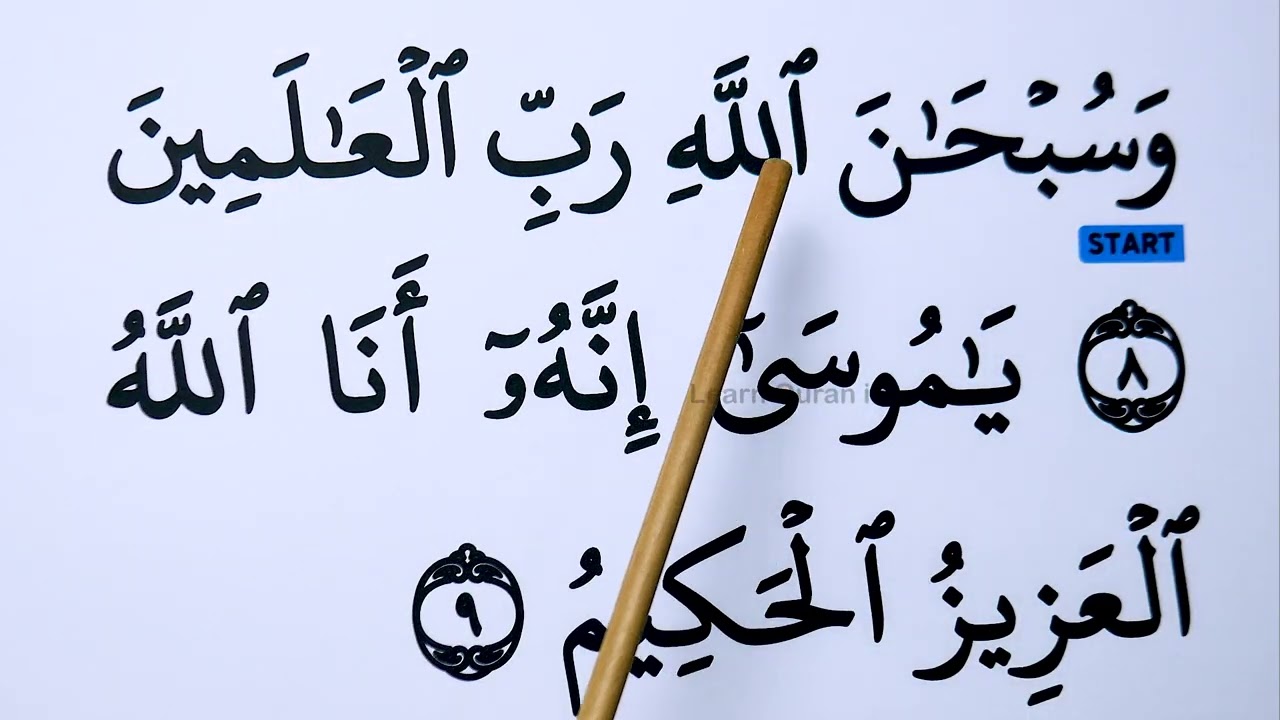 وَسُبْحَـٰنَ ٱللَّهِ رَبِّ ٱلْعَـٰلَمِينَ
START
٨ يَـٰمُوسَىٰٓ إِنَّهُۥٓ أَنَا ٱللَّهُ
Learn Quran i
ٱلْعَزِيزُ ٱلْحَكِيمُ ٩